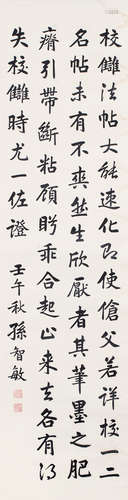 校雠法帖大能速化即使傖父若詳校一二
名帖未有不爽然生欣厭者其筆墨之肥
瘠引帶斷粘顧眄乖合起止来去各有得
失校雠時尤一佐證
壬午秋孫智敏